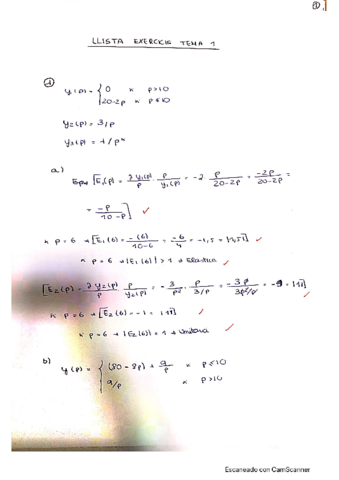 LLISTA EXERCICIS TEMA 1
1
y₁(p) = { 0 x p>10
20-2p x p≤10
y₂(p) = 3/p
y₃(p) = 4/p²
a)
[E₁(p) = ∂y₁(p)/p · p/y₁(p) = -2 · p/20-2p = -2p/20-2p =
= -p/10-p] ✓
x p=6 → [E₁(6) = -(6)/10-6 = -6/4 = -1,5 = |1,5|] ✓
x p=6 → |E₁(6)| > 1 → Elàstica ✓
[E₂(p) = ∂y₂(p)/p · p/y₂(p) = -3/p² · p/3/p = -3p/3p²/p = -1 = |1|] ✓
x p=6 → [E₂(6) = -1 = |1|] ✓
x p=6 → |E₂(6)| = 1 → Unitària ✓
b) y(p) = { (80-8p) + 9/p x p≤10
9/p x p>10
Escaneado con CamScanner